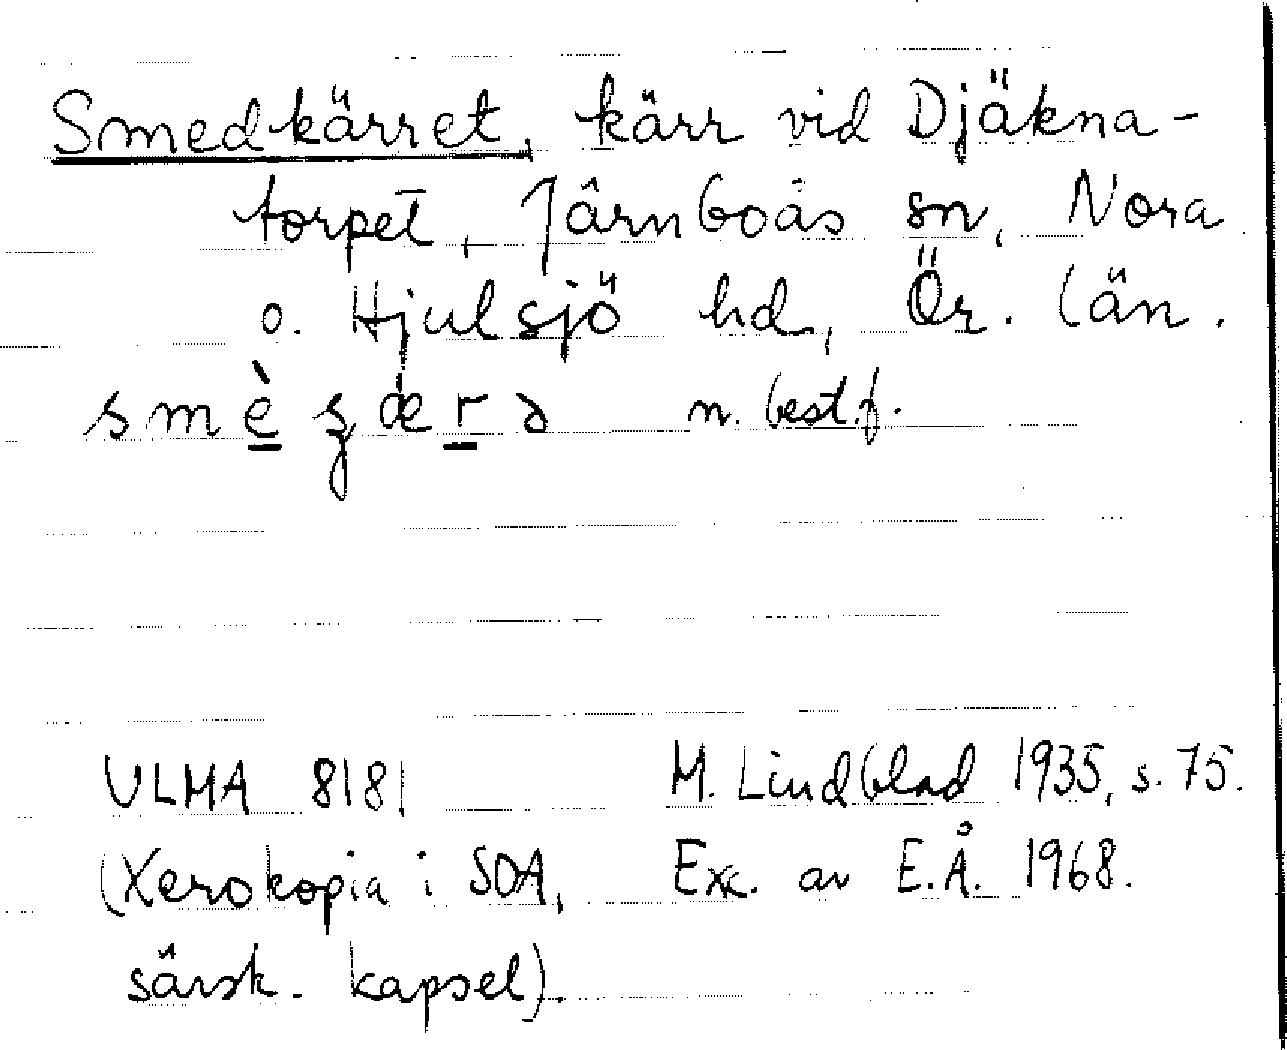 Smedkärret, kärr vid Djäkna-
torpet, Järnboås sn, Nora
o. Hjulsjö hd, Ör. län.
n. best.f.
ULMA 8181 M. Lindblad 1935, s. 75.
(Xerokopia i SOA, Exc. av E.Å. 1968.
särsk. kapsel).